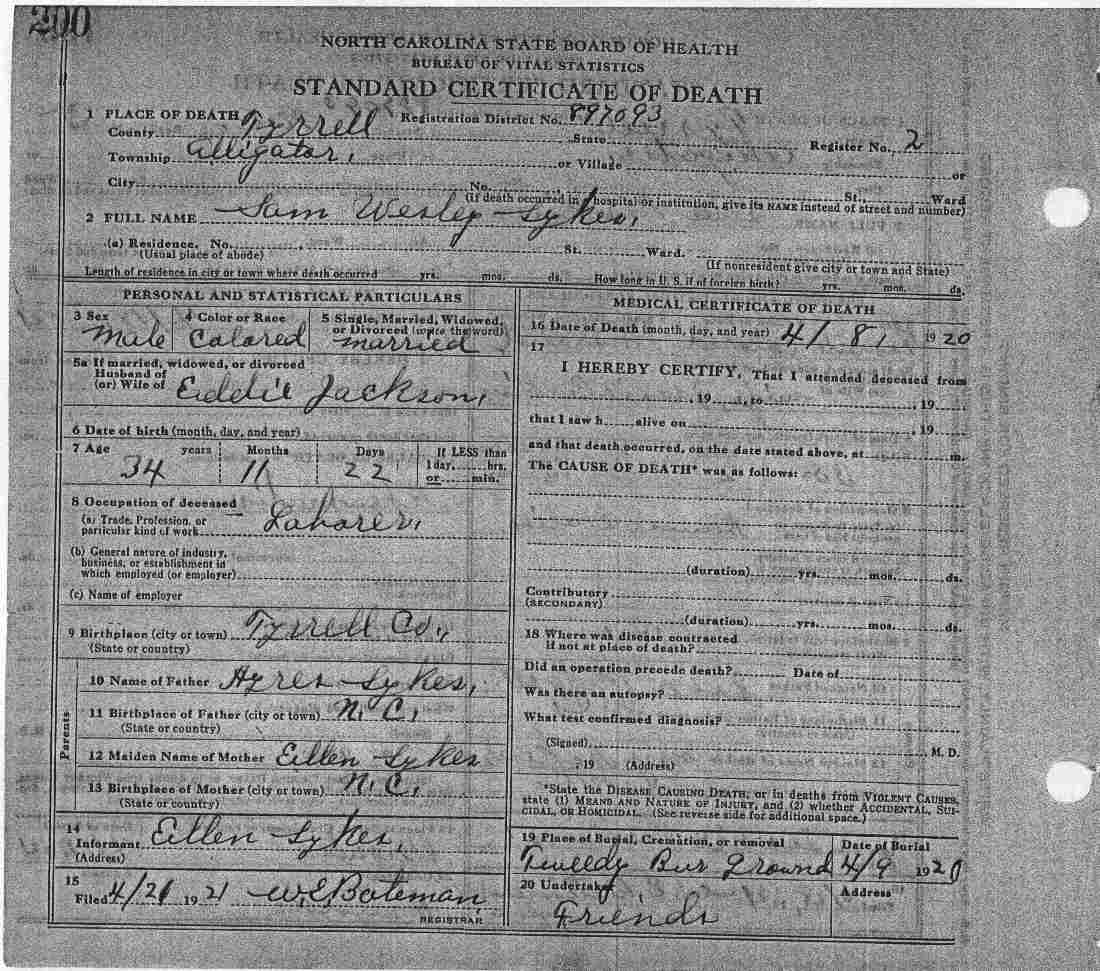 200
NORTH CAROLINA STATE BOARD OF HEALTH
BUREAU OF VITAL STATISTICS
STANDARD CERTIFICATE OF DEATH
1 PLACE OF DEATH Registration District No. 897093
County Tyrrell State Register No. 2
Township Alligator, or Village or
City No. St., Ward
(if death occurred in hospital or institution, give its NAME instead of street and number)
2 FULL NAME Sam Wesley Sykes,
(a) Residence. No. St. Ward.
(Usual place of abode) (If nonresident give city or town and State)
Length of residence in city or town where death occurred yrs. mos. ds. How long in U. S. if of foreign birth? yrs. mos. ds.
PERSONAL AND STATISTICAL PARTICULARS
3 Sex 4 Color or Race 5 Single, Married, Widowed,
or Divorced (write the word)
Male Colored married
5a If married, widowed, or divorced
Husband of
(or) Wife of Eddie Jackson,
6 Date of birth (month, day, and year)
7 Age years Months Days If LESS than
1 day, hrs.
34 11 22 or min.
8 Occupation of deceased
(a) Trade, Profession, or
particular kind of work Laborer,
(b) General nature of industry,
business, or establishment in
which employed (or employer)
(c) Name of employer
9 Birthplace (city or town) Tyrrell Co.,
(State or country)
Parents
10 Name of Father Hyres Sykes,
11 Birthplace of Father (city or town) N. C.,
(State or country)
12 Maiden Name of Mother Eillen Sykes
13 Birthplace of Mother (city or town) N. C.,
(State or country)
14
Informant Eillen Sykes,
(Address)
15
Filed 4/21 1921 W.E. Bateman,
REGISTRAR
MEDICAL CERTIFICATE OF DEATH
16 Date of Death (month, day, and year) 4/ 8, 1920
17
I HEREBY CERTIFY, That I attended deceased from
, 19 , to , 19
that I saw h alive on , 19
and that death occurred, on the date stated above, at m.
The CAUSE OF DEATH* was as follows:
(duration) yrs. mos. ds.
Contributory
(SECONDARY)
(duration) yrs. mos. ds.
18 Where was disease contracted
if not at place of death?
Did an operation precede death? Date of
Was there an autopsy?
What test confirmed diagnosis?
(Signed) M. D.
, 19 (Address)
*State the DISEASE CAUSING DEATH, or in deaths from VIOLENT CAUSES,
state (1) MEANS AND NATURE OF INJURY, and (2) whether ACCIDENTAL, SUI-
CIDAL, OR HOMICIDAL. (See reverse side for additional space.)
19 Place of Burial, Cremation, or removal Date of Burial
Tweedy Bur Ground 4/9 1920
20 Undertaker Address
Friends